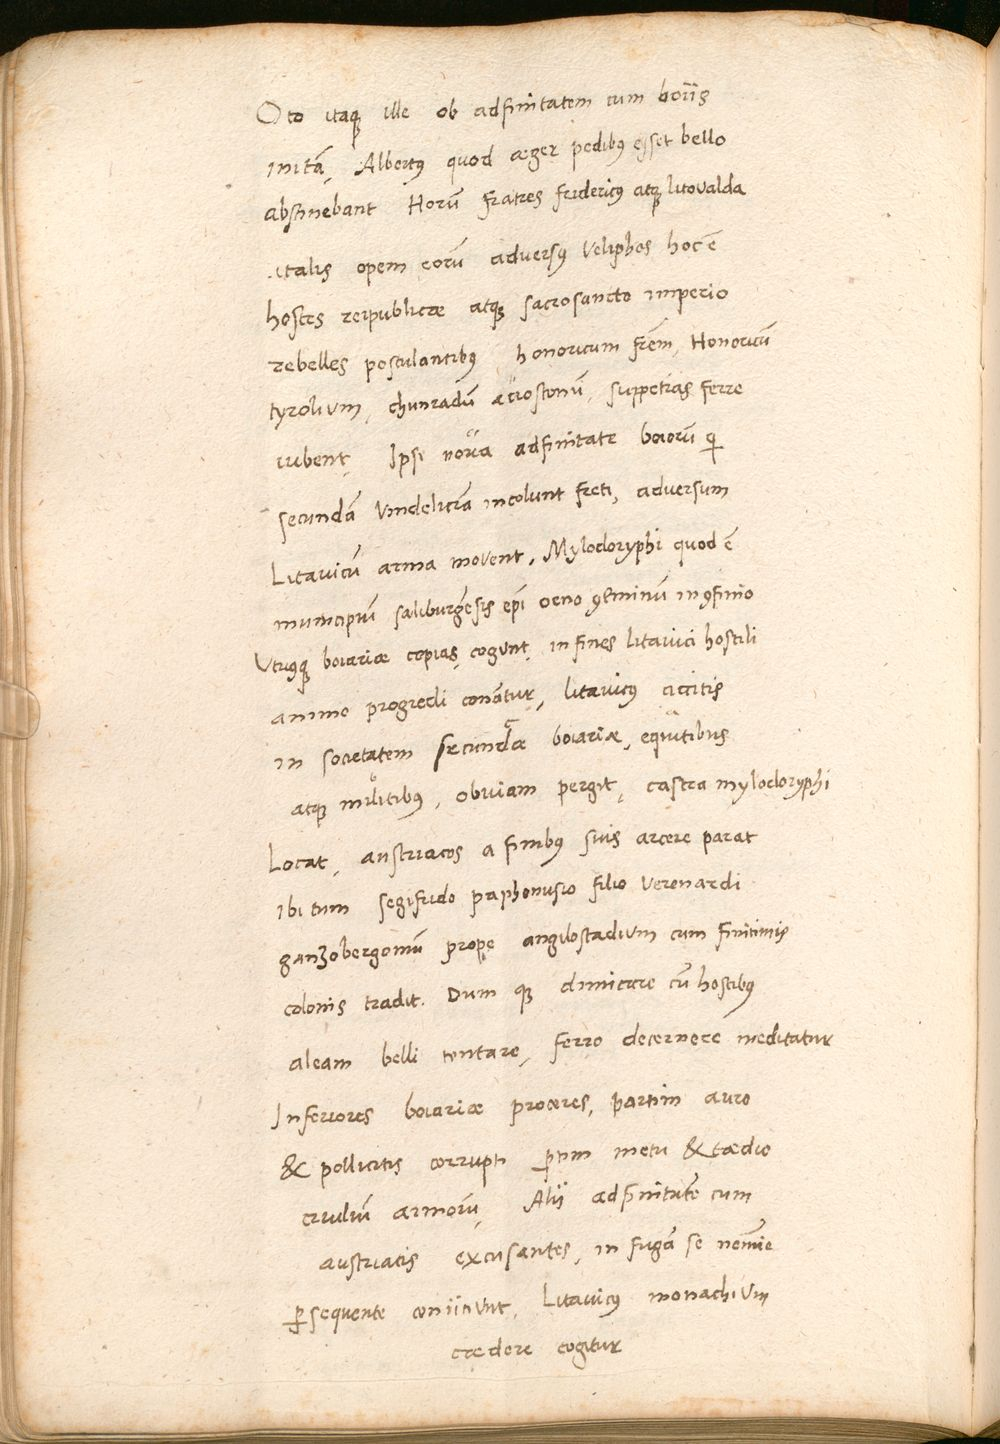 Oto itaqꝫ ille ob adfinitatem cum boiis
initā, Albertꝰ quod æger pedibꝰ esset bello
abstinebant Horū fratres fridericꝰ atqꝫ litovalda
italis opem eorū adversꝰ Veliphos hoc ē
hostes reipublicæ atqꝫ sacrosancto imperio
rebelles postulantibꝰ honoricum frēm, Honoricū
tyrolium, chunradū acrostonū, suppetias ferre
iubent, Ipsi nova adfinitate boiorū qi
secundā Vindeliciā incolunt freti, adversum
Litavicū arma movent, Mylodoryphi quod ē
municipiū saliburgēsis epī oeno ꝯterminū in ꝯfinio
Vtriꝰqꝫ boiariæ copias cogunt, in fines litavici hostili
animo progredi conātur, litavicꝰ accitis
in societatem secundæ boiariæ, equitibus
atqꝫ militibꝰ, obviam pergit, castra mylodoryphi
Locat, austriacos a finibꝰ suis arcere parat
ibi tum segifrido praphonusio filio Veronardi
ganzobergomū prope angilostadium cum finitimis
colonis tradit. Dum qꝫ dimicare cū hostibꝰ
aleam belli tentare, ferro decernere meditatur
Inferiores boiariæ proceres, partim auro
& pollicitis corrupti ꝑtim metu & tædio
civiliū armorū, Alii adfinitatē cum
austriacis excusantes, in fugā se nemīe
ꝑsequente coniiciunt, Litavicꝰ monachium
cædere cogitur